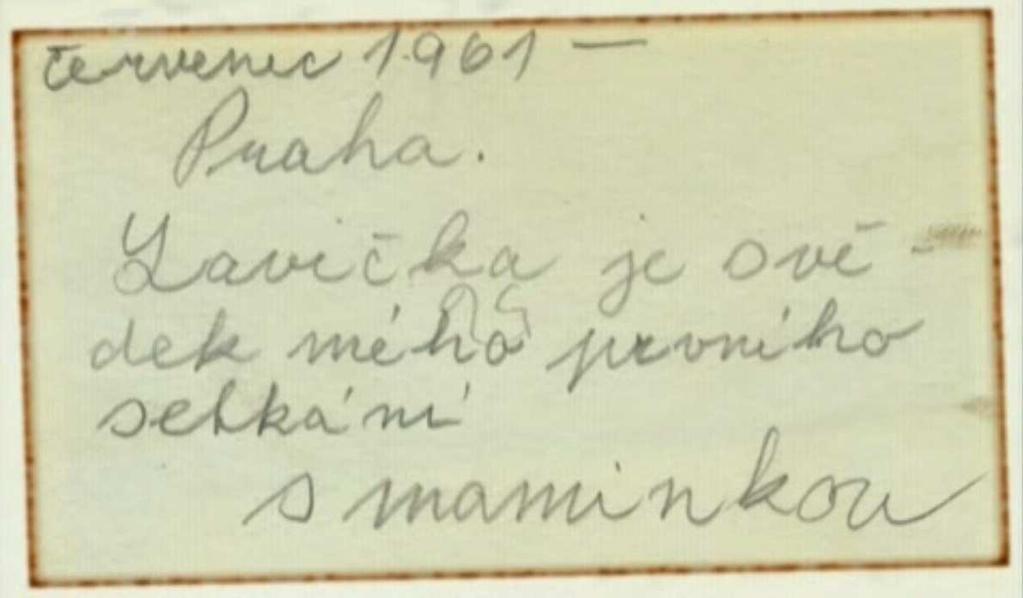 červenec 1961 —
Praha.
Lavička je svě-
dek mého prvního
setkání
s maminkou